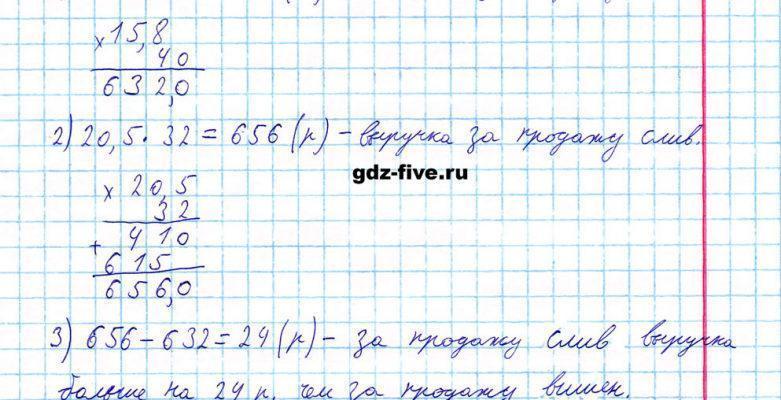 × 15,8
40
632,0
2) 20,5 · 32 = 656 (р) – выручка за продажу слив.
gdz-five.ru
× 20,5
32
+ 410
615
656,0
3) 656 – 632 = 24 (р) – за продажу слив выручка
больше на 24 р. чем за продажу вишен.